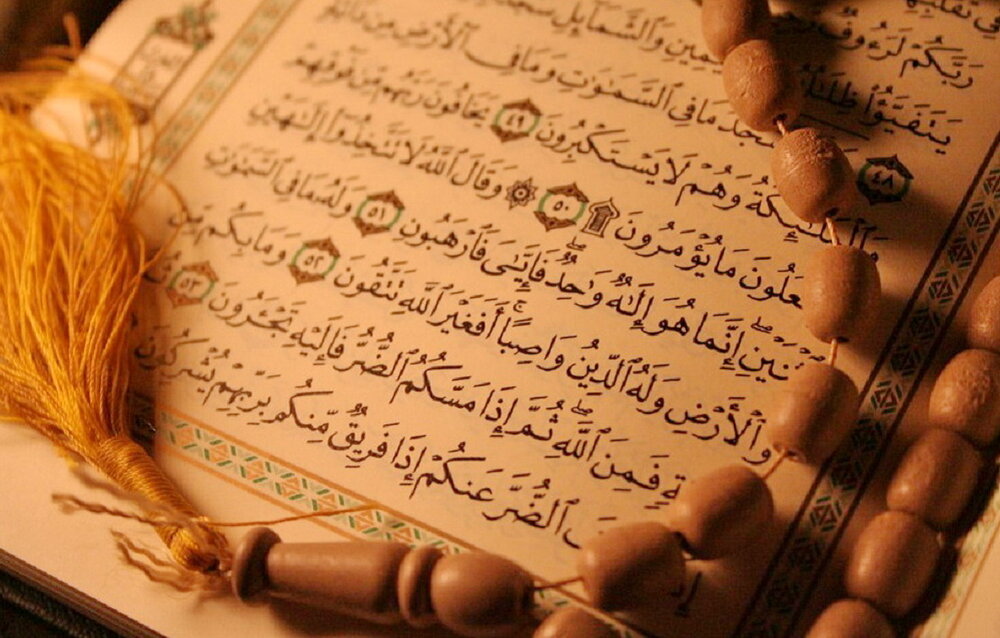 رَبَّكُمْ لَرَءُوفٌ
يَتَفَيَّؤُا۟ ظِلَٰلُهُۥ ٱلْيَمِينِ وَٱلشَّمَآئِلِ سُجَّدًا
٤٨ يَسْجُدُ مَا فِى ٱلسَّمَٰوَٰتِ وَمَا فِى ٱلْأَرْضِ مِن دَآبَّةٍ
وَٱلْمَلَٰٓئِكَةُ وَهُمْ لَا يَسْتَكْبِرُونَ ٤٩ يَخَافُونَ رَبَّهُم مِّن فَوْقِهِمْ
وَيَفْعَلُونَ مَا يُؤْمَرُونَ ۩ ٥٠ ۞ وَقَالَ ٱللَّهُ لَا تَتَّخِذُوٓا۟ إِلَٰهَيْنِ
ٱثْنَيْنِ ۖ إِنَّمَا هُوَ إِلَٰهٌ وَٰحِدٌ ۖ فَإِيَّٰىَ فَٱرْهَبُونِ ٥١ وَلَهُۥ مَا فِى ٱلسَّمَٰوَٰتِ
وَٱلْأَرْضِ وَلَهُ ٱلدِّينُ وَاصِبًا ۚ أَفَغَيْرَ ٱللَّهِ تَتَّقُونَ ٥٢ وَمَا بِكُم مِّن
نِّعْمَةٍ فَمِنَ ٱللَّهِ ۖ ثُمَّ إِذَا مَسَّكُمُ ٱلضُّرُّ فَإِلَيْهِ تَجْـَٔرُونَ ٥٣
ٱلضُّرَّ عَنكُمْ إِذَا فَرِيقٌ مِّنكُم بِرَبِّهِمْ يُشْرِكُونَ